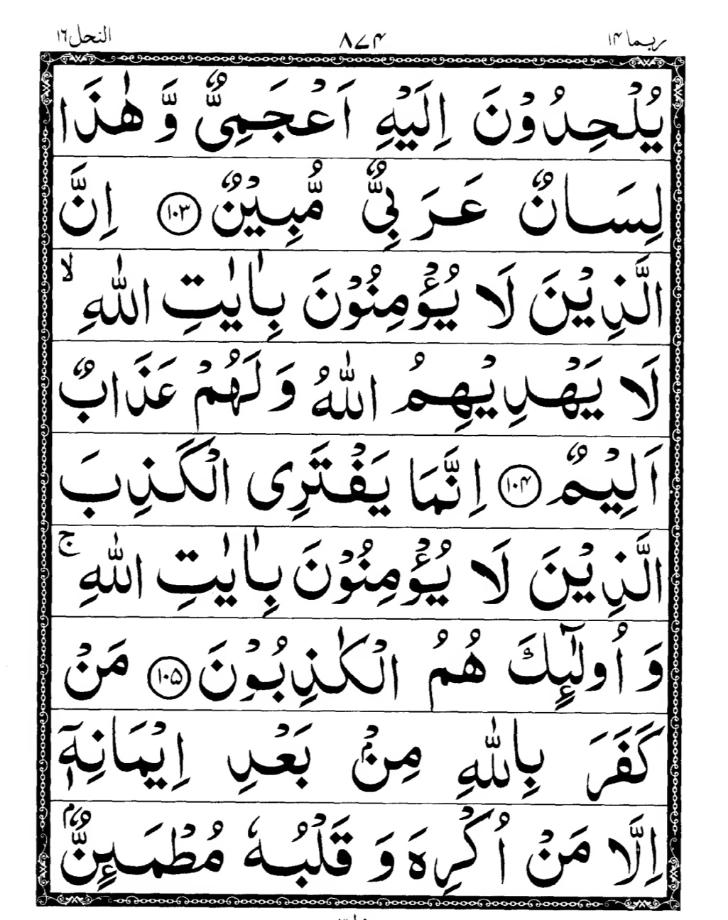 ربما ۱۴ ۸۷۴ النحل ۱۶
يُلْحِدُوْنَ اِلَيْهِ اَعْجَمِىٌّ وَّ هٰذَا
لِسَانٌ عَرَبِىٌّ مُّبِيْنٌ ﴿۱۰۳﴾ اِنَّ
الَّذِيْنَ لَا يُؤْمِنُوْنَ بِاٰيٰتِ اللّٰهِ ۙ
لَا يَهْدِيْهِمُ اللّٰهُ وَ لَهُمْ عَذَابٌ
اَلِيْمٌ ﴿۱۰۴﴾ اِنَّمَا يَفْتَرِى الْكَذِبَ
الَّذِيْنَ لَا يُؤْمِنُوْنَ بِاٰيٰتِ اللّٰهِ ۚ
وَ اُولٰٓئِكَ هُمُ الْكٰذِبُوْنَ ﴿۱۰۵﴾ مَنْ
كَفَرَ بِاللّٰهِ مِنْۢ بَعْدِ اِيْمَانِهٖۤ
اِلَّا مَنْ اُكْرِهَ وَ قَلْبُهٗ مُطْمَئِنٌّۢ